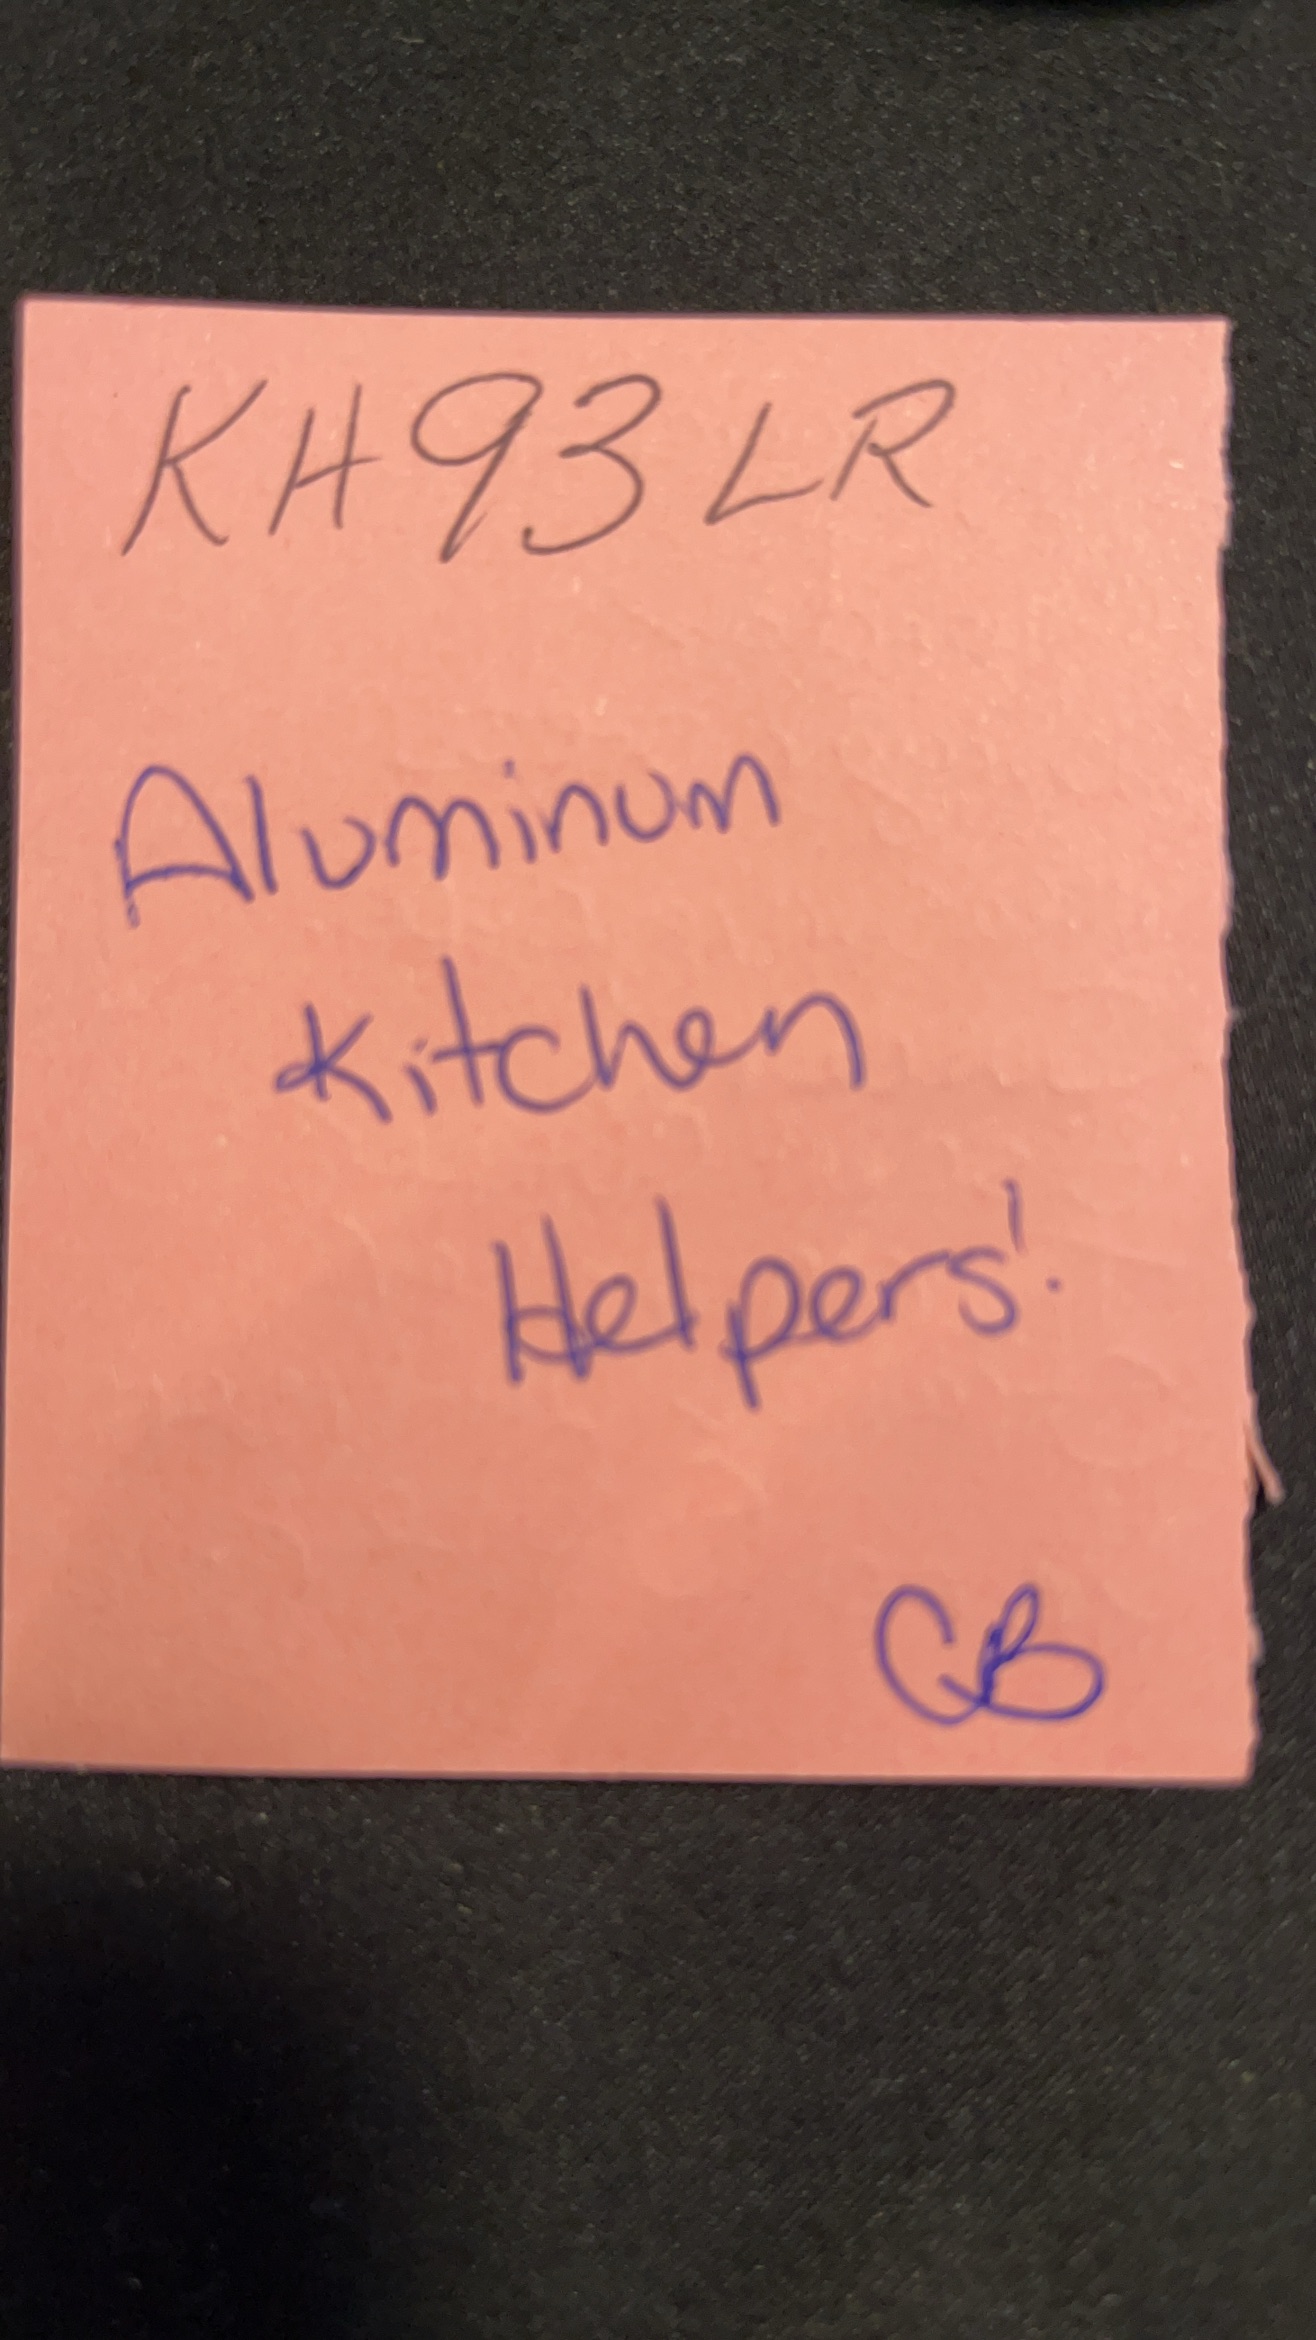 KH93LR
Aluminum
Kitchen
Helpers!
CB